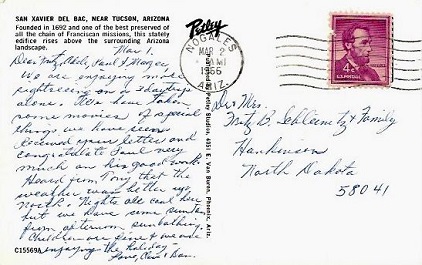 SAN XAVIER DEL BAC, NEAR TUCSON, ARIZONA
Founded in 1692 and one of the best preserved of
all the chain of Franciscan missions, this stately
edifice rises above the surrounding Arizona
landscape.
Mar 1.
Dear Fritz, Paul &
We are enjoying more
sightseeing on
alone. We have taken
some movies of special
things we have seen
Received your letter and
congratulate Paul very
much on his good work.
Heard from Tony that the
weather was better up
North. Nights are cool here
but we have some
from afternoon sunbathing.
Children are fine & we are
enjoying the holiday
Love,
C15569
Petley
Petley Studios, 4051 E. Van Buren, Phoenix, Ariz.
NOGALES
MAR 2
AM
1966
ARIZ.
4¢
U.S. POSTAGE
Mrs.
Fritz B. & Family
Hankinson
North Dakota
58041